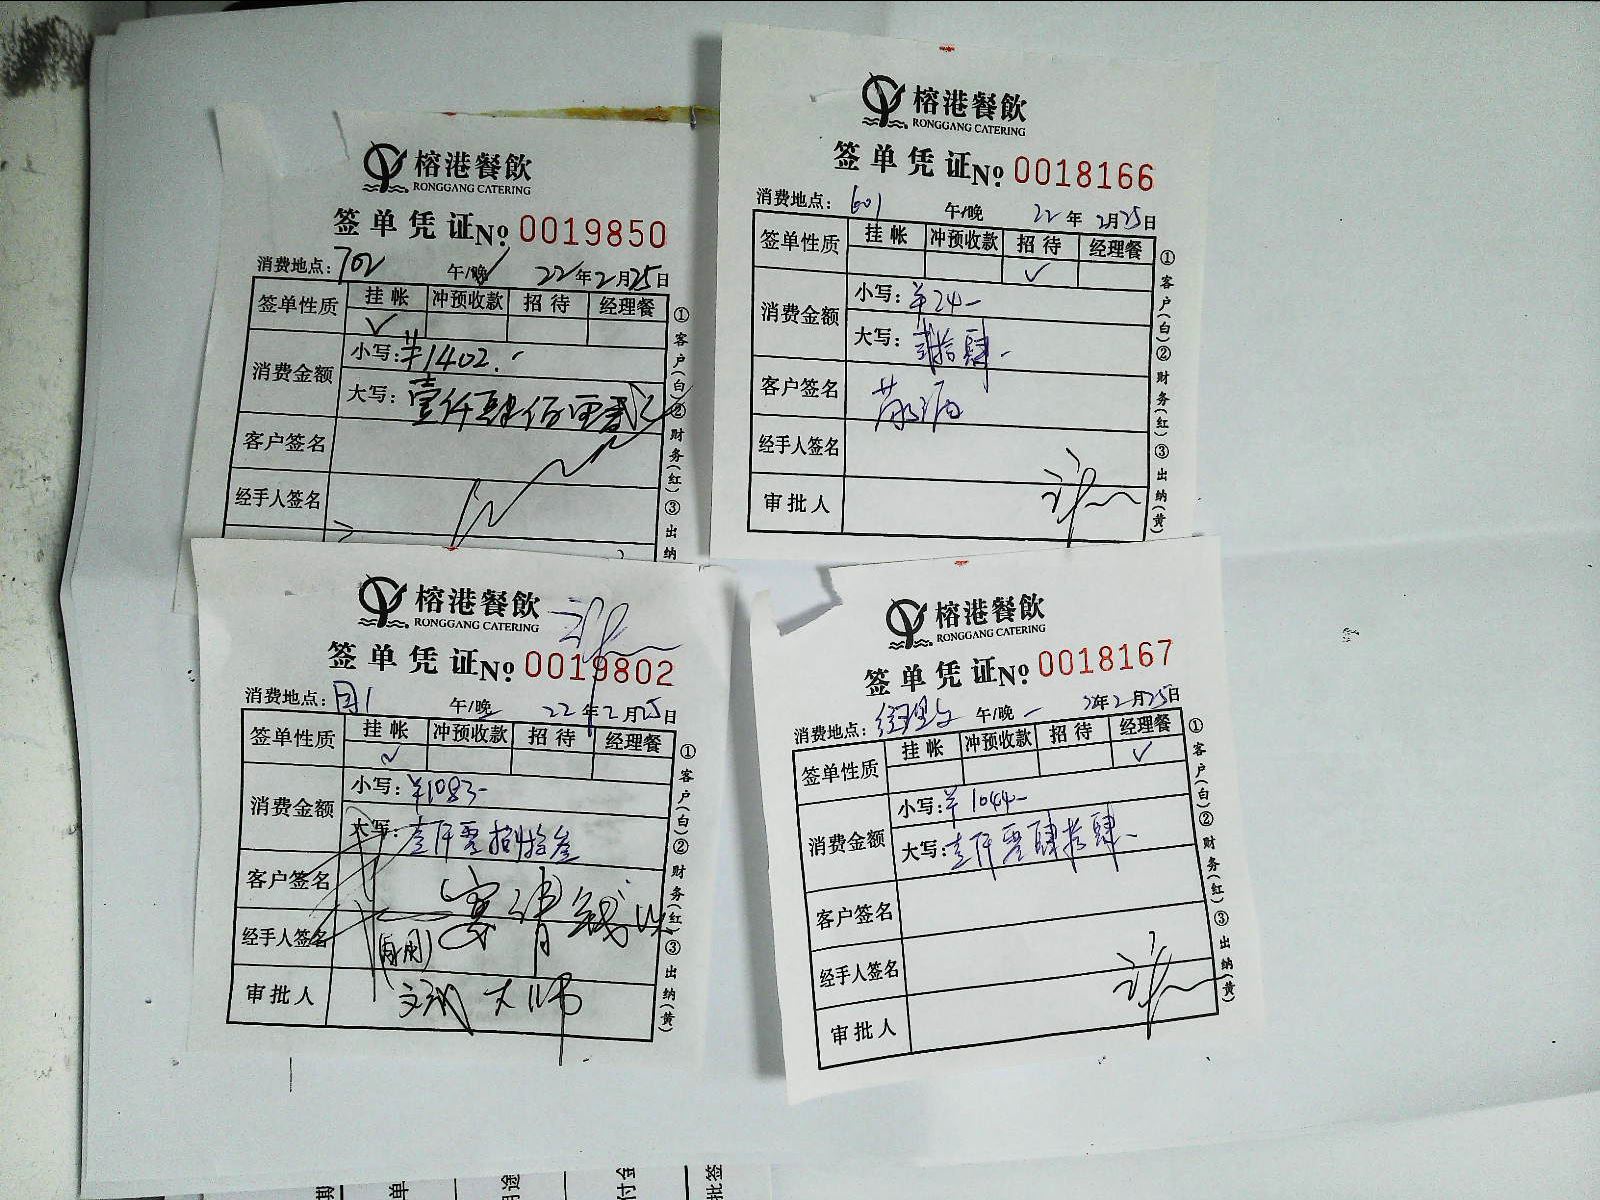 榕港餐飲
RONGGANG CATERING
签单凭证No. 0019850
消费地点: 702 午/晚 22年2月25日
签单性质 挂帐 冲预收款 招待 经理餐
✓
消费金额 小写: ¥1402.-
大写: 壹仟肆佰零贰
客户签名
经手人签名
①客户(白)②财务(红)③出纳
榕港餐飲
RONGGANG CATERING
签单凭证No. 0018166
消费地点: 601 午/晚 22年2月25日
签单性质 挂帐 冲预收款 招待 经理餐
✓
消费金额 小写: ¥24-
大写: 贰拾肆.
客户签名
经手人签名
审批人
①客户(白)②财务(红)③出纳(黄)
榕港餐飲
RONGGANG CATERING
签单凭证No. 0019802
消费地点: 午/晚 22年2月25日
签单性质 挂帐 冲预收款 招待 经理餐
✓
消费金额 小写: ¥1083-
大写: 壹仟零捌拾叁
客户签名
经手人签名
审批人
①客户(白)②财务(红)③出纳(黄)
榕港餐飲
RONGGANG CATERING
签单凭证No. 0018167
消费地点: 午/晚 22年2月25日
签单性质 挂帐 冲预收款 招待 经理餐
✓
消费金额 小写: ¥1044-
大写: 壹仟零肆拾肆
客户签名
经手人签名
审批人
①客户(白)②财务(红)③出纳(黄)
期 单 用途 付金 批签